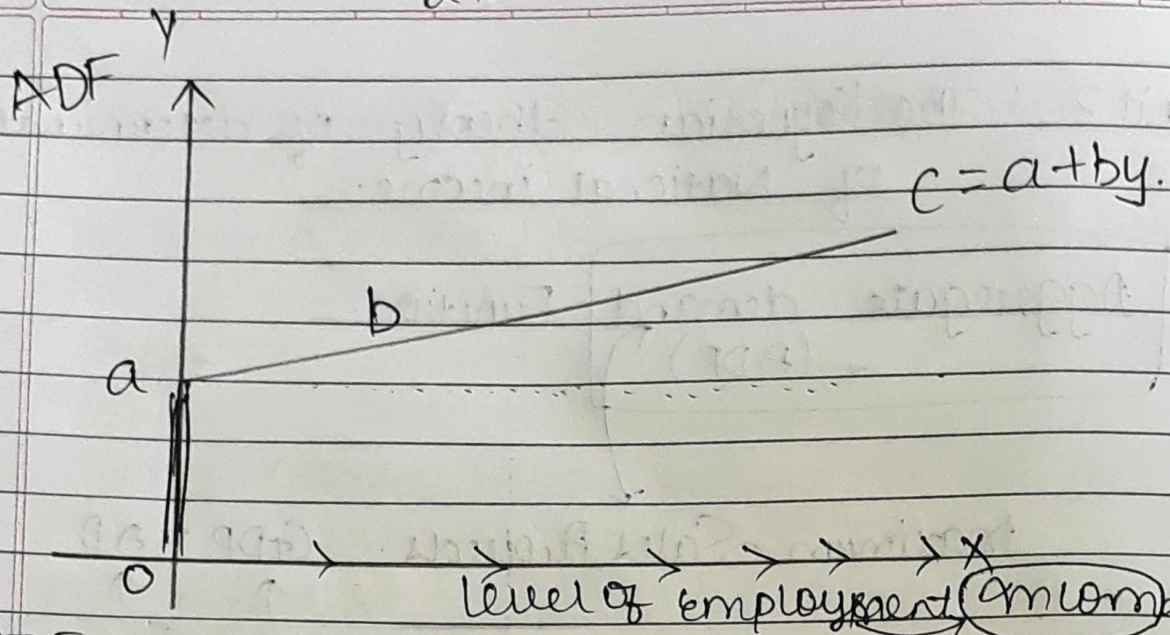 Y
ADF
C = a + by.
b
a
O
X
level of employment (Income)